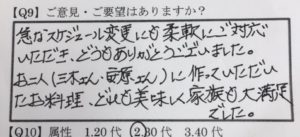 【Q9】ご意見・ご要望はありますか？
急なスケジュール変更にも柔軟にご対応
いただき、どうもありがとうございました。
お二人（三木さん・安原さん）に作っていただい
たお料理、どれも美味しく家族も大満足
でした。
【Q10】属性 1.20代 2.30代 3.40代